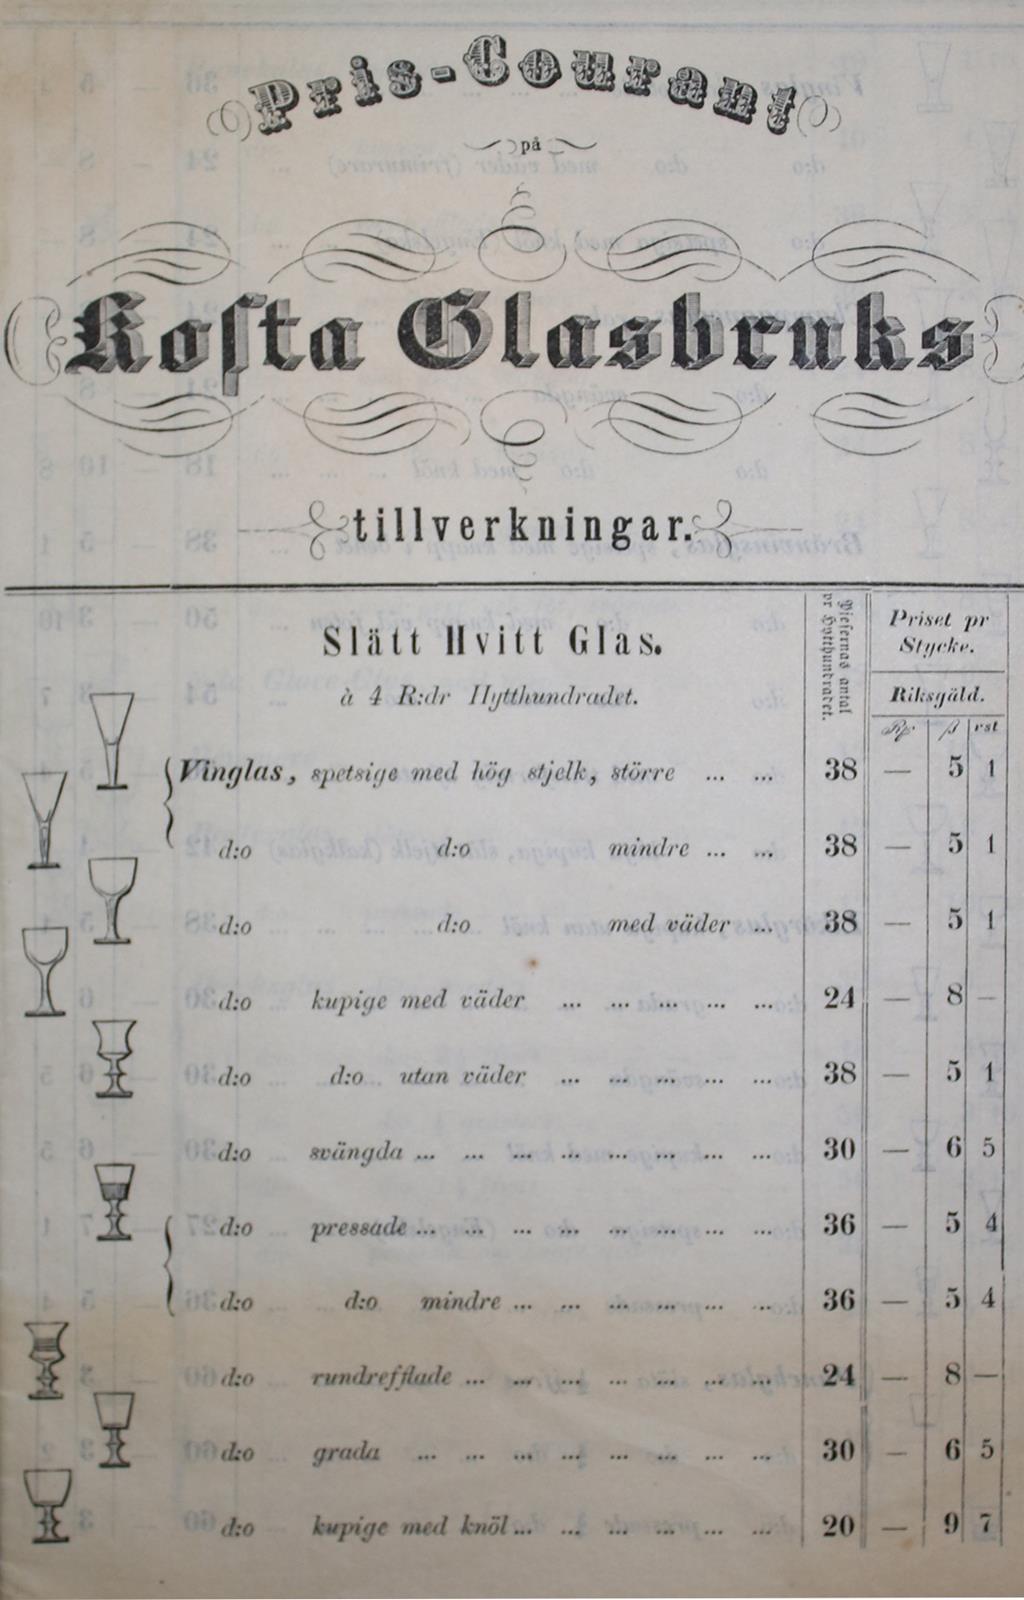 Pris-Courant
på
Kosta Glasbruks
tillverkningar.
Slätt Hvitt Glas.
à 4 R:dr Hytthundradet.
Pjesernas antal
pr Hytthundradet.
Priset pr
Stycke.
Riksgäld.
ß rst
Vinglas, spetsige med hög stjelk, större ... ... 38 — 5 1
d:o d:o mindre ... ... 38 — 5 1
d:o d:o med väder ... 38 — 5 1
d:o kupige med väder ... ... ... ... ... 24 — 8 —
d:o d:o utan väder ... ... ... ... ... 38 — 5 1
d:o svängda ... ... ... ... ... ... ... ... 30 — 6 5
d:o pressade ... ... ... ... ... ... ... ... 36 — 5 4
d:o d:o mindre ... ... ... ... ... ... 36 — 5 4
d:o rundrefflade ... ... ... ... ... ... ... 24 — 8 —
d:o grada ... ... ... ... ... ... ... ... 30 — 6 5
d:o kupige med knöl ... ... ... ... ... ... 20 — 9 7